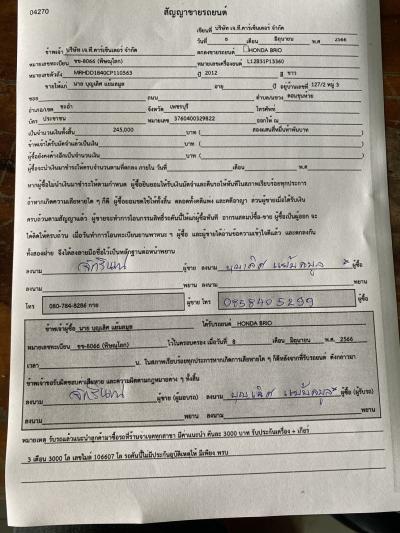 04270
สัญญาขายรถยนต์
เขียนที่ บริษัท เจ.ที.คาร์เซ็นเตอร์ จำกัด
วันที่ 8 เดือน มิถุนายน พ.ศ. 2566
ข้าพเจ้า บริษัท เจ.ที.คาร์เซ็นเตอร์ จำกัด ตกลงขายรถยนต์ HONDA BRIO
หมายเลขทะเบียน ขข-8066 (พิษณุโลก) หมายเลขเครื่องยนต์ L12B31P13360
หมายเลขตัวถัง MRHDD1840CP110563 ปี 2012 สี ขาว
ขายให้แก่ นาย บุญเลิศ แย้มสมูล อายุ ปี อยู่บ้านเลขที่ 127/2 หมู่ 3
ซอย ถนน ตำบล/แขวง ดอนขุนห้วย
อำเภอ/เขต ชะอำ จังหวัด เพชรบุรี โทรศัพท์
บัตร ประชาชน หมายเลข 3760400329822 ออกให้ ณ
เป็นจำนวนเงินทั้งสิ้น 245,000 บาท ( สองแสนสี่หมื่นห้าพันบาท )
ข้าพเจ้าได้รับมัดจำแล้วเป็นเงิน บาท ( )
ผู้ซื้อยังคงค้างอีกเป็นจำนวนเงิน บาท ( )
ผู้ซื้อจะนำเงินมาชำระให้ครบจำนวนตามที่ตกลง ภายใน วันที่ เดือน พ.ศ.
หากผู้ซื้อไม่นำเงินมาชำระตามกำหนด ผู้ซื้อยินยอมให้ริบเงินมัดจำและคืนรถให้ทันทีในสภาพเรียบร้อยทุกประการ
ถ้าหากเกิดความเสียหายใด ๆ ก็ดี ผู้ซื้อยอมชดใช้ให้ทั้งสิ้น ตลอดทั้งคดีแพ่ง และคดีอาญา ส่วนผู้ขายเมื่อได้รับเงิน
ครบถ้วนตามสัญญาแล้ว ผู้ขายจะทำการโอนกรรมสิทธิ์รถคันนี้ให้แก่ผู้ซื้อทันที
ทั้งสองฝ่าย จึงได้ลงลายมือชื่อไว้เป็นหลักฐานต่อหน้าพยาน
ลงนาม ผู้ขาย ลงนาม บุญเลิศ ผู้ซื้อ
ลงนาม พยาน ลงนาม พยาน
โทร 080-784-8286 ผู้ขาย โทร 0858405299 ผู้ซื้อ
ข้าพเจ้าผู้ซื้อ นาย บุญเลิศ แย้มสมูล ได้รับรถยนต์ HONDA BRIO
หมายเลขทะเบียน ขข-8066 (พิษณุโลก) ไว้ในครอบครอง เมื่อวันที่ 8 เดือน มิถุนายน พ.ศ. 2566
เวลา น. ในสภาพเรียบร้อยทุกประการหากเกิดการเสียหายใด ๆ ก็ดีหลังจากที่รับรถยนต์ ดังกล่าวมา
ข้าพเจ้าขอรับผิดชอบค่าเสียหาย และความผิดตามกฎหมายต่าง ๆ ทั้งสิ้น
ลงนาม ผู้ขาย (ผู้มอบรถ) ลงนาม บุญเลิศ ผู้ซื้อ (ผู้รับรถ)
ลงนาม พยาน ลงนาม พยาน
หมายเหตุ มีค่าแนะนำ คันละ 3000 บาท รับประกันเครื่อง + เกียร์
3 เดือน 3000 โล เลขไมล์ 106607 โล รถคันนี้ไม่มีประกันอุบัติเหตุให้ มีเพียง พรบ